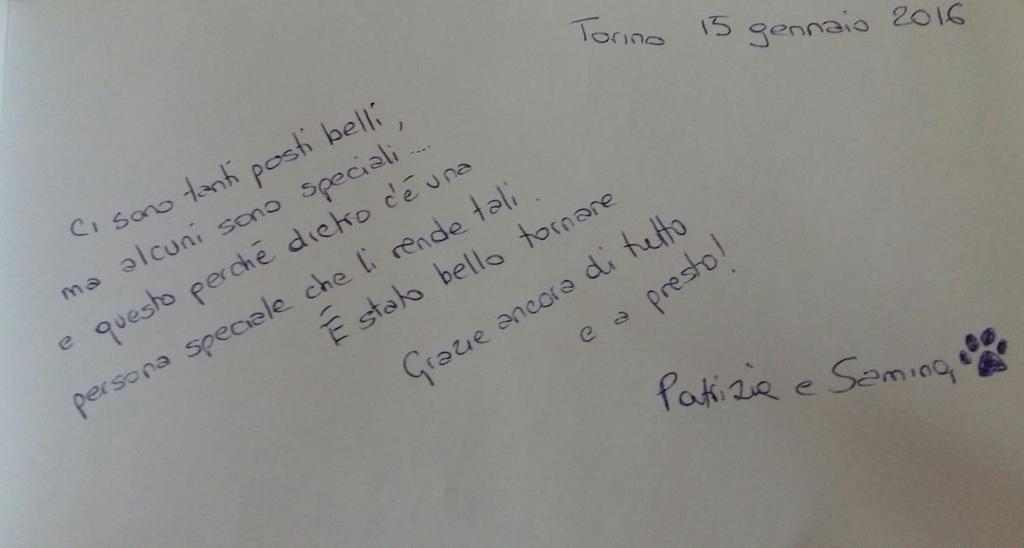 Torino 15 gennaio 2016
Ci sono tanti posti belli,
ma alcuni sono speciali ...
e questo perché dietro c'è una
persona speciale che li rende tali.
È stato bello tornare
Grazie ancora di tutto
e a presto!
Patrizia e Samina